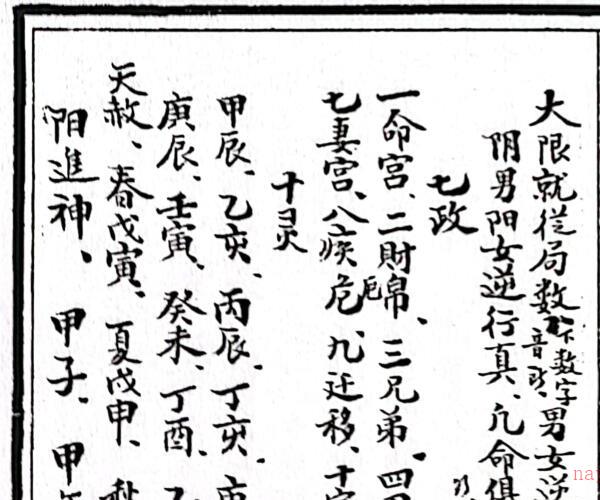 大限就從局数下数字男女逆
音
阴男阳女逆行真、凡命俱
七政
一命宫、二財帛、三兄弟、四
七妻宫、八疾厄危、九迁移、十
十灵
甲辰、乙亥、丙辰、丁亥、庚
庚辰、壬寅、癸未、丁酉、乙
天赦、春戊寅、夏戊申、秋
阳進神、甲子、甲午